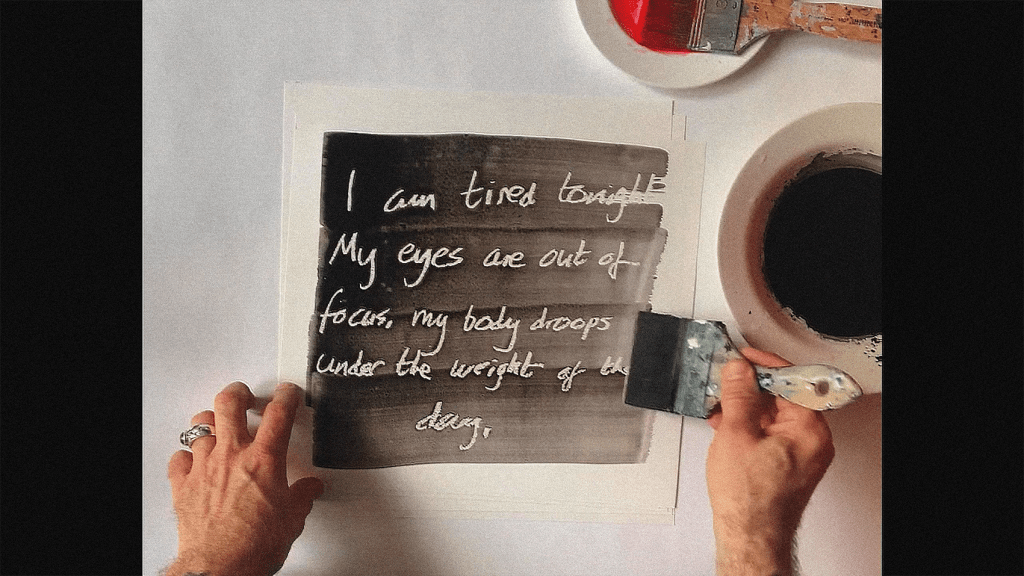 I am tired tonight
My eyes are out of
focus, my body droops
under the weight of the
day.